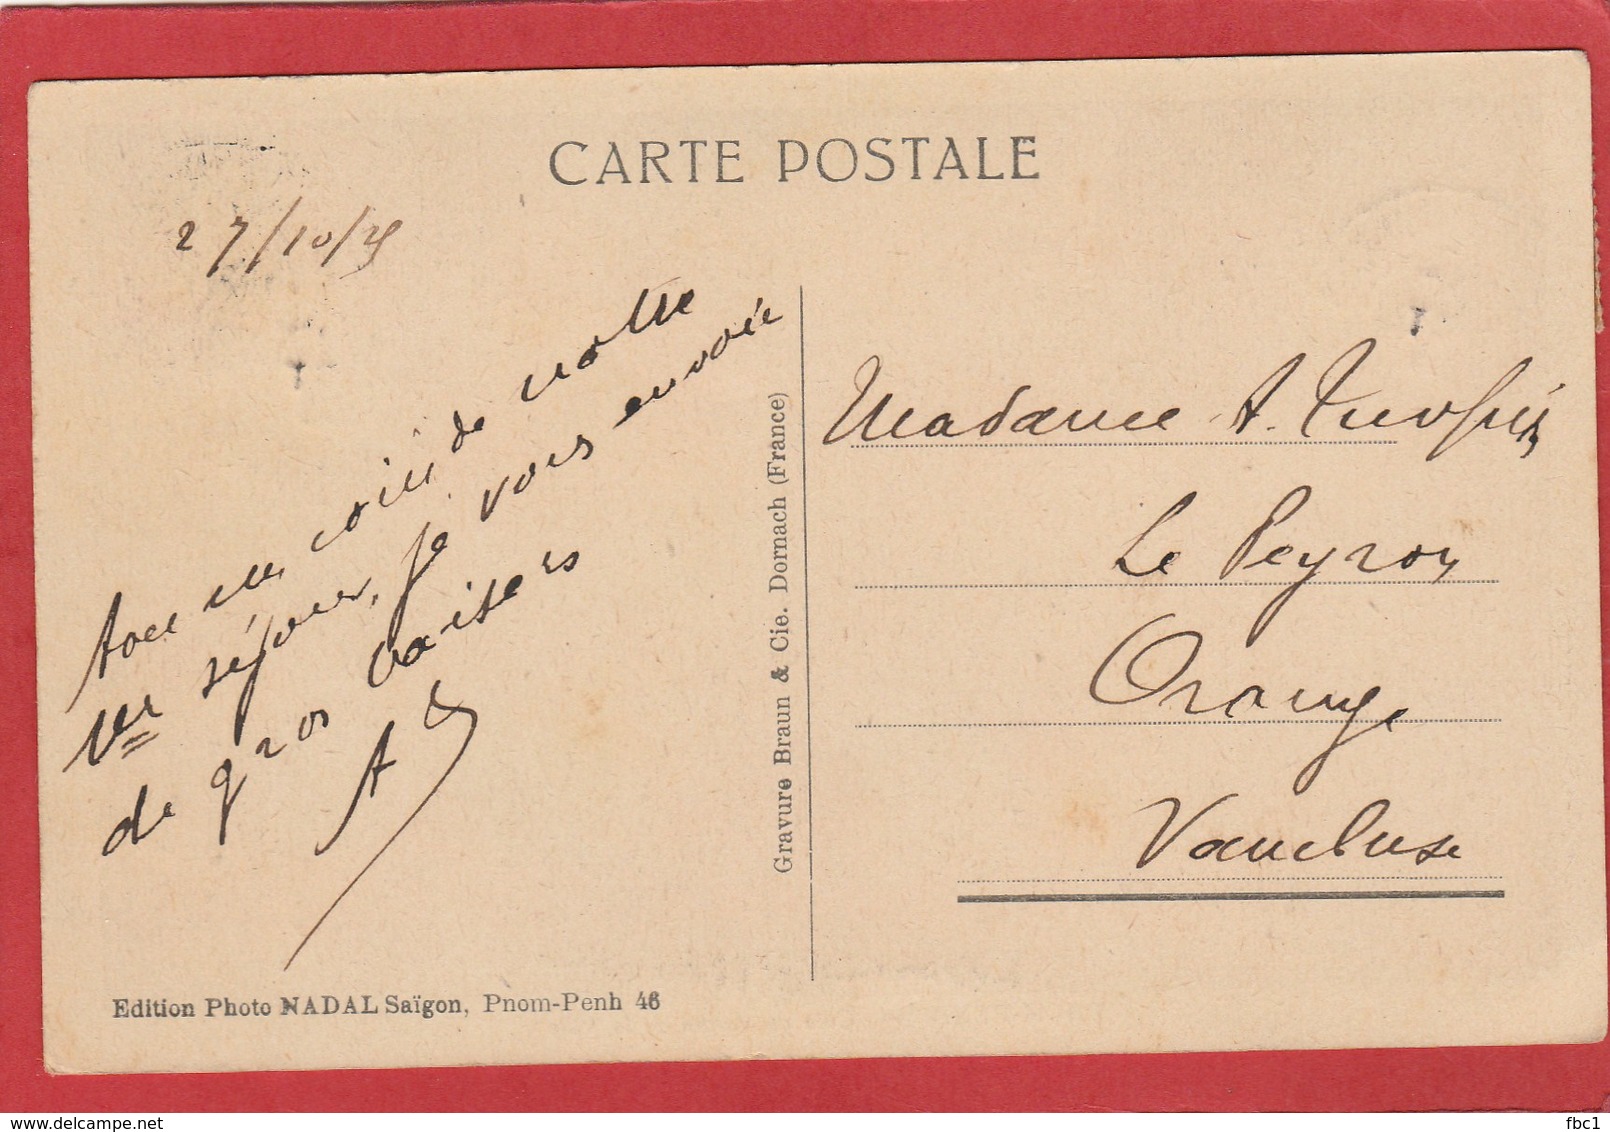 CARTE POSTALE
27/10/25
Avec un coin de notre
1er séjour, je vous envoie
de gros baisers
A
Madame A.
Le Peyron
Orange
Vaucluse
Gravure Braun & Cie. Dornach (France)
Edition Photo NADAL Saïgon, Pnom-Penh 46
delcampe.net
fbc1